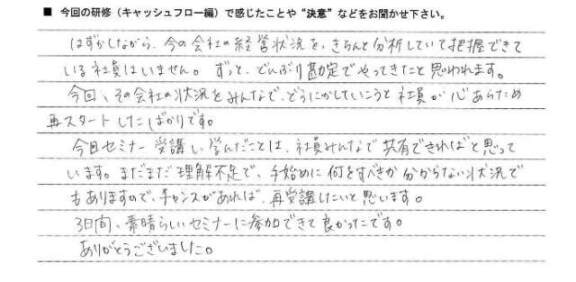 ■ 今回の研修（キャッシュフロー編）で感じたことや“決意”などをお聞かせ下さい。
はずかしながら、今の会社の経営状況を、きちんと分析していて把握できて
いる社員はいません。ずっと、どんぶり勘定でやってきたと思われます。
今回、その会社の状況をみんなで、どうにかしていこうと社員が心あらため
再スタートしたばかりです。
今回セミナー受講し、学んだことは、社員みんなで共有できればと思って
います。まだまだ理解不足で、手始めに何をすべきか分からない状況で
もありますので、チャンスがあれば、再受講したいと思います。
3日間、素晴らしいセミナーに参加できて良かったです。
ありがとうございました。